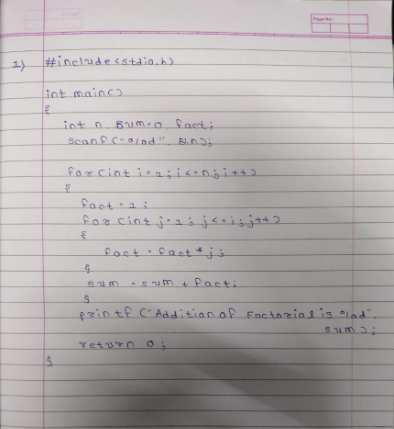 Page No:
1) #include<stdio.h>
int main()
{
int n, sum=0, fact;
scanf("%d", &n);
for(int i=1; i<=n; i++)
{
fact=1;
for(int j=1; j<=i; j++)
{
fact = fact*j;
}
sum = sum + fact;
}
printf("Addition of Factorial is %d",
sum);
return 0;
}